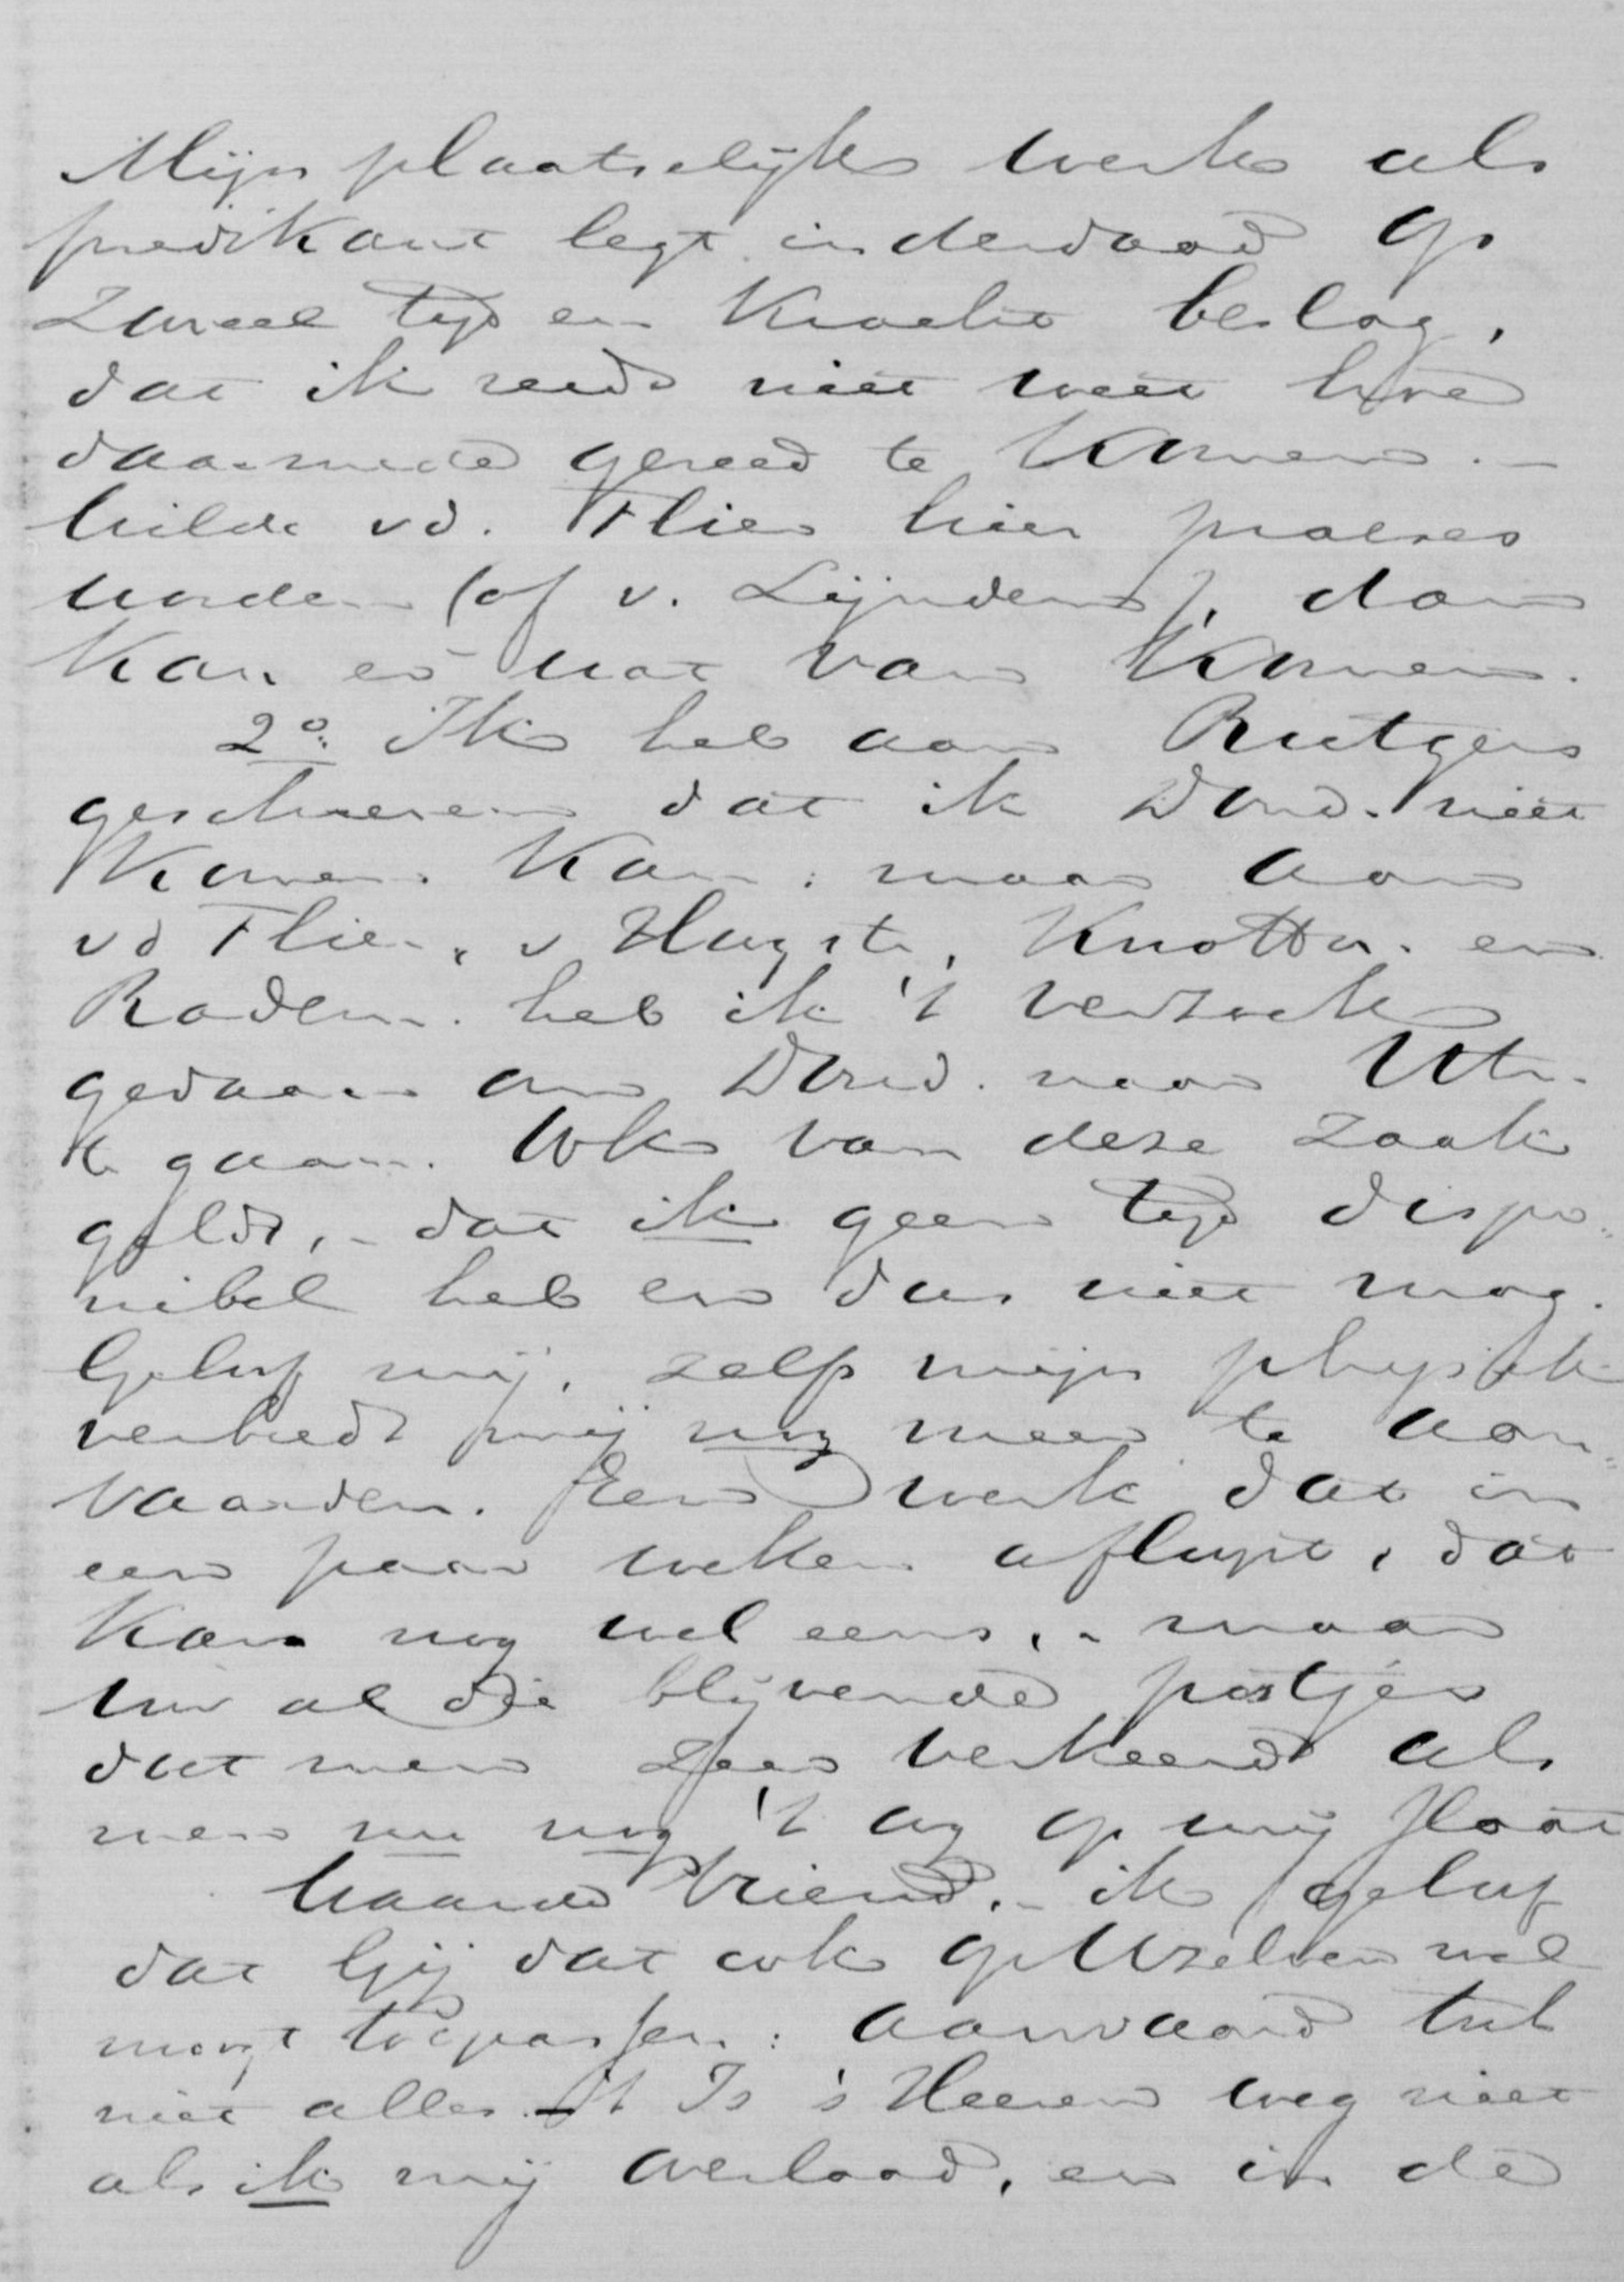 Mijn plaatselijk werk als
predikant legt inderdaad op
zooveel tijd en kracht beslag,
dat ik reeds niet weet hoe
daarmede gereed te komen. –
Wilde vd. Flier hier praeses
worden (of v. Lijnden), dan
kan er wat van komen.
2o. Ik heb aan Rutgers
geschreven dat ik Dond. niet
komen kan: maar aan
vd Flier, v Hoogstr, Knottn. en
Radem. heb ik 't verzoek
gedaan om Dond. naar Utr.
te gaan. Ook van deze zaak
geldt, – dat ik geen tijd dispo-
nibel heb en dus niet mag.
Geloof mij, zelfs mijn physiek
verbiedt mij nog meer te aan=
vaarden. Een werk dat in
een paar weken afloopt, dat
kan nog wel eens, – maar
nu al die blijvende postjes
doet men zeer verkeerd als
men nu nog 't oog op mij slaat
Waarde Vriend, – ik geloof
dat Gij dat ook op Uzelven wel
moogt toepassen: aanvaard toch
niet alles. – 't Is 's Heeren weg niet
als ik mij overlaad, en in de